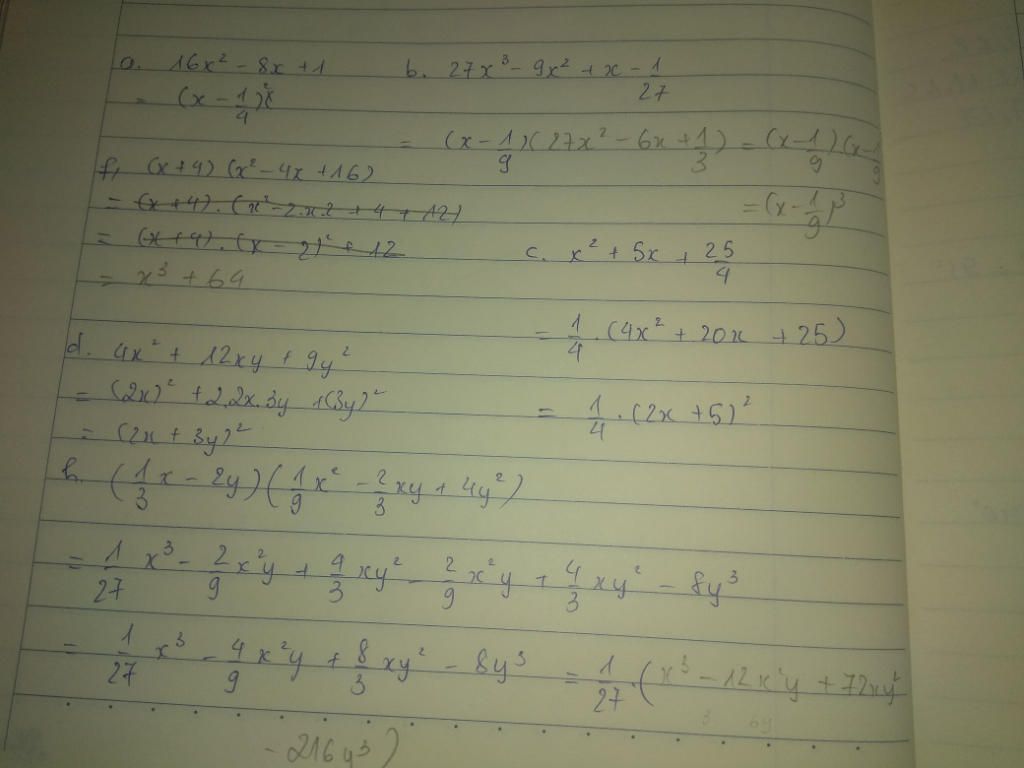 a. 16x² - 8x + 1
= (x - 1/4)²
b. 27x³ - 9x² + x - 1/27
= (x - 1/9)(27x² - 6x + 1/3) = (x - 1/9)(x - 1/9
= (x - 1/9)³
f, (x+4)(x² - 4x + 16)
= (x+4).(x² - 2.x.2 + 4 + 12)
= (x+4).(x - 2)² + 12
= x³ + 64
c. x² + 5x + 25/4
= 1/4 .(4x² + 20x + 25)
= 1/4 .(2x + 5)²
d. 4x² + 12xy + 9y²
= (2x)² + 2.2x.3y + (3y)²
= (2x + 3y)²
h. (1/3 x - 2y)(1/9 x² - 2/3 xy + 4y²)
= 1/27 x³ - 2/9 x²y + 4/3 xy² - 2/9 x²y + 4/3 xy² - 8y³
= 1/27 x³ - 4/9 x²y + 8/3 xy² - 8y³ = 1/27 .(x³ - 12x²y + 72xy²
- 216y³)